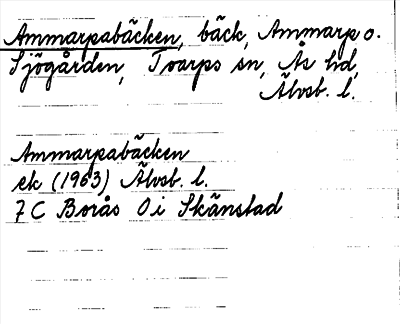 Ammarpabäcken, bäck, Ammarp o.
Sjögården, Tvarps sn, Ås hd,
Älvsb. l.
Ammarpabäcken
ek (1963) Älvsb. l.
7C Borås 0i Skänstad